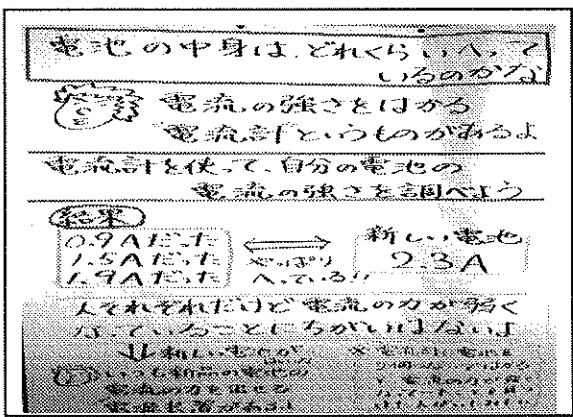 電池の中身は、どれくらいへって
いるのかな
電流の強さをはかる
電流計というものがあるよ
電流計を使って、自分の電池の
電流の強さを調べよう
結果
0.9Aだった
1.5Aだった
1.9Aだった
やっぱり
へっている!!
新しい電池
2.3A
人それぞれだけど電流の力が弱く
なっていることにちがいはないよ
新しい電池が
いつも新品の電池の
電流の力を出せる
電源装置があるよ